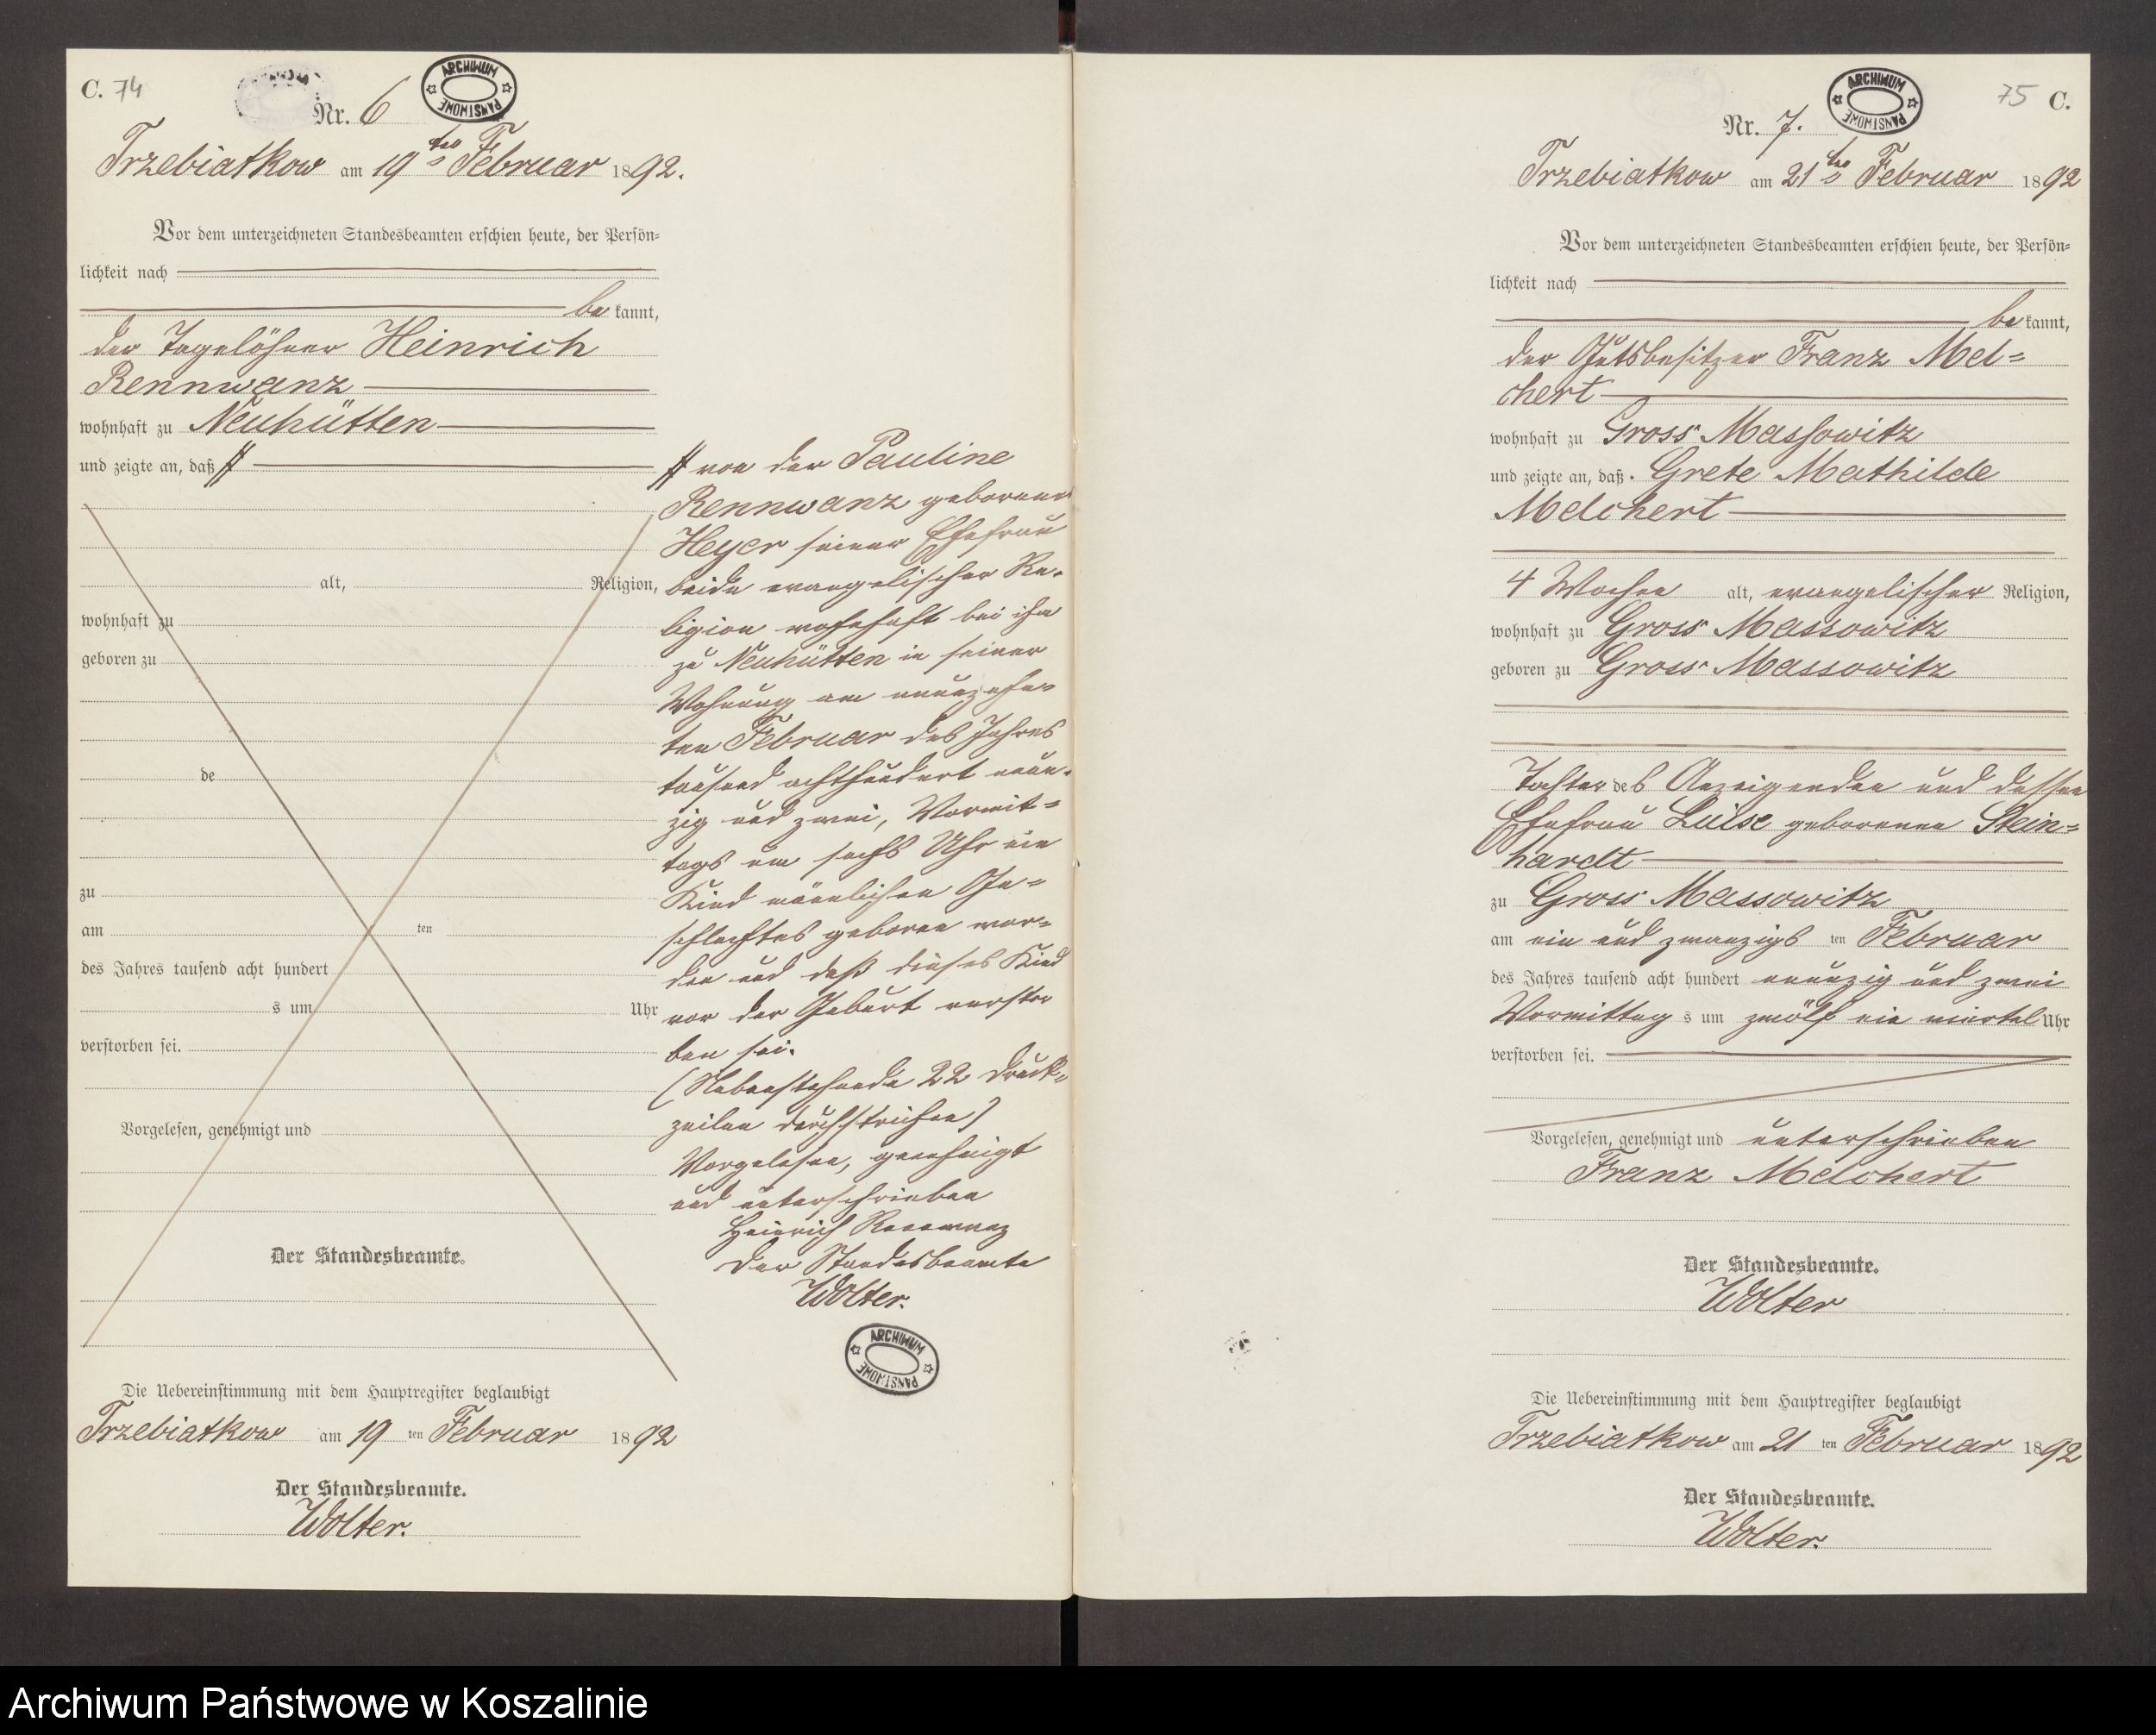 C. 74
Nr. 6
ARCHIWUM PAŃSTWOWE
Trzebiatkow am 19ten Februar 1892.
Vor dem unterzeichneten Standesbeamten erschien heute, der Persön-
lichkeit nach
be kannt,
der Tagelöhner Heinrich
Rennwanz
wohnhaft zu Neuhütten
und zeigte an, daß
alt, Religion,
wohnhaft zu
geboren zu
de
zu
am ten
des Jahres tausend acht hundert
s um Uhr
verstorben sei.
Vorgelesen, genehmigt und
Der Standesbeamte.
von der Pauline
Rennwanz geborener
Heyer seiner Ehefrau
beide evangelischer Re-
ligion wohnhaft bei ihm
zu Neuhütten in seiner
Wohnung am neunzehn-
ten Februar des Jahres
tausend achthundert neun-
zig und zwei, Vormit-
tags um sechs Uhr ein
Kind männlichen Ge-
schlechtes geboren wor-
den und daß dieses Kind
vor der Geburt verstor
ben sei.
(Nebenstehende 22 Druck-
zeilen durchstrichen)
Vorgelesen, genehmigt
und unterschrieben
Heinrich Rennwanz
Der Standesbeamte
Wolter.
ARCHIWUM PAŃSTWOWE
Die Uebereinstimmung mit dem Hauptregister beglaubigt
Trzebiatkow am 19 ten Februar 1892
Der Standesbeamte.
Wolter.
75 C.
Nr. 7.
ARCHIWUM PAŃSTWOWE
Trzebiatkow am 21ten Februar 1892
Vor dem unterzeichneten Standesbeamten erschien heute, der Persön-
lichkeit nach
be kannt,
der Gutsbesitzer Franz Mel-
chert
wohnhaft zu Gross Massowitz
und zeigte an, daß Grete Mathilde
Melchert
4 Wochen alt, evangelischer Religion,
wohnhaft zu Gross Massowitz
geboren zu Gross Massowitz
Tochter des Anzeigenden und dessen
Ehefrau Luise geborenen Stein-
hardt
zu Gross Massowitz
am ein und zwanzigs ten Februar
des Jahres tausend acht hundert neunzig und zwei
Vormittag s um zwölf ein viertel Uhr
verstorben sei.
Vorgelesen, genehmigt und unterschrieben
Franz Melchert
Der Standesbeamte.
Wolter
Die Uebereinstimmung mit dem Hauptregister beglaubigt
Trzebiatkow am 21 ten Februar 1892
Der Standesbeamte.
Wolter.
Archiwum Państwowe w Koszalinie